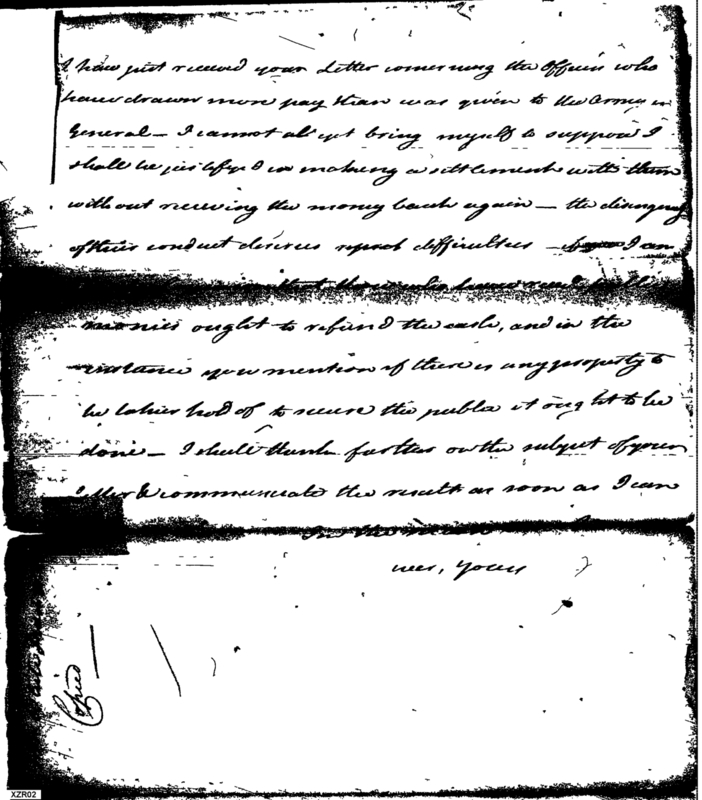 I have just received your Letter concerning the Officers who
have drawn more pay than was given to the Army in
General — I cannot as yet bring myself to suppose I
shall be justifyed in making a settlement with them
without receiving the money back again — the
of their conduct difficulties — I am
that those who have rec'd
monies ought to refund the cash, and in the
instance you mention if there is any property to
be taken hold of to secure the public it ought to be
done — I shall think further on the subject of your
letter & communicate the result as soon as I can
In the mean
yours
Copied
XZR02